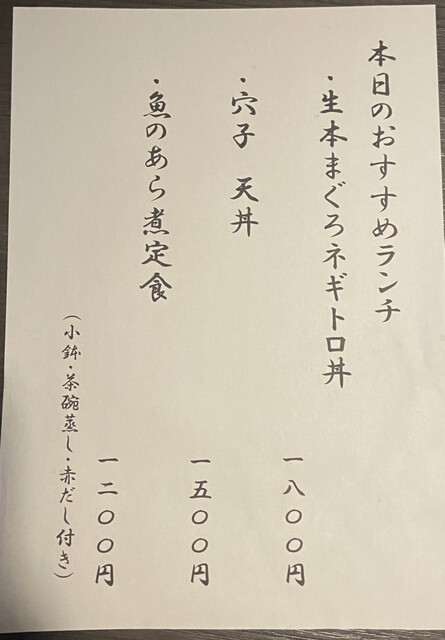 本日のおすすめランチ
・生本まぐろネギトロ丼
一八〇〇円
・穴子 天丼
一五〇〇円
・魚のあら煮定食
一二〇〇円
(小鉢・茶碗蒸し・赤だし付き)